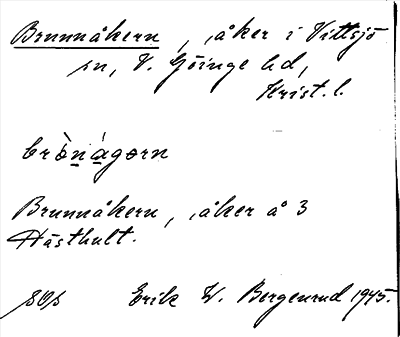 Brunnåkern, åker i Vittsjö
sn, V. Göinge hd,
Krist. l.
brònágorn
Brunnåkern, åker å 3
Hästhult.
Erik W. Bergenrud 1945.